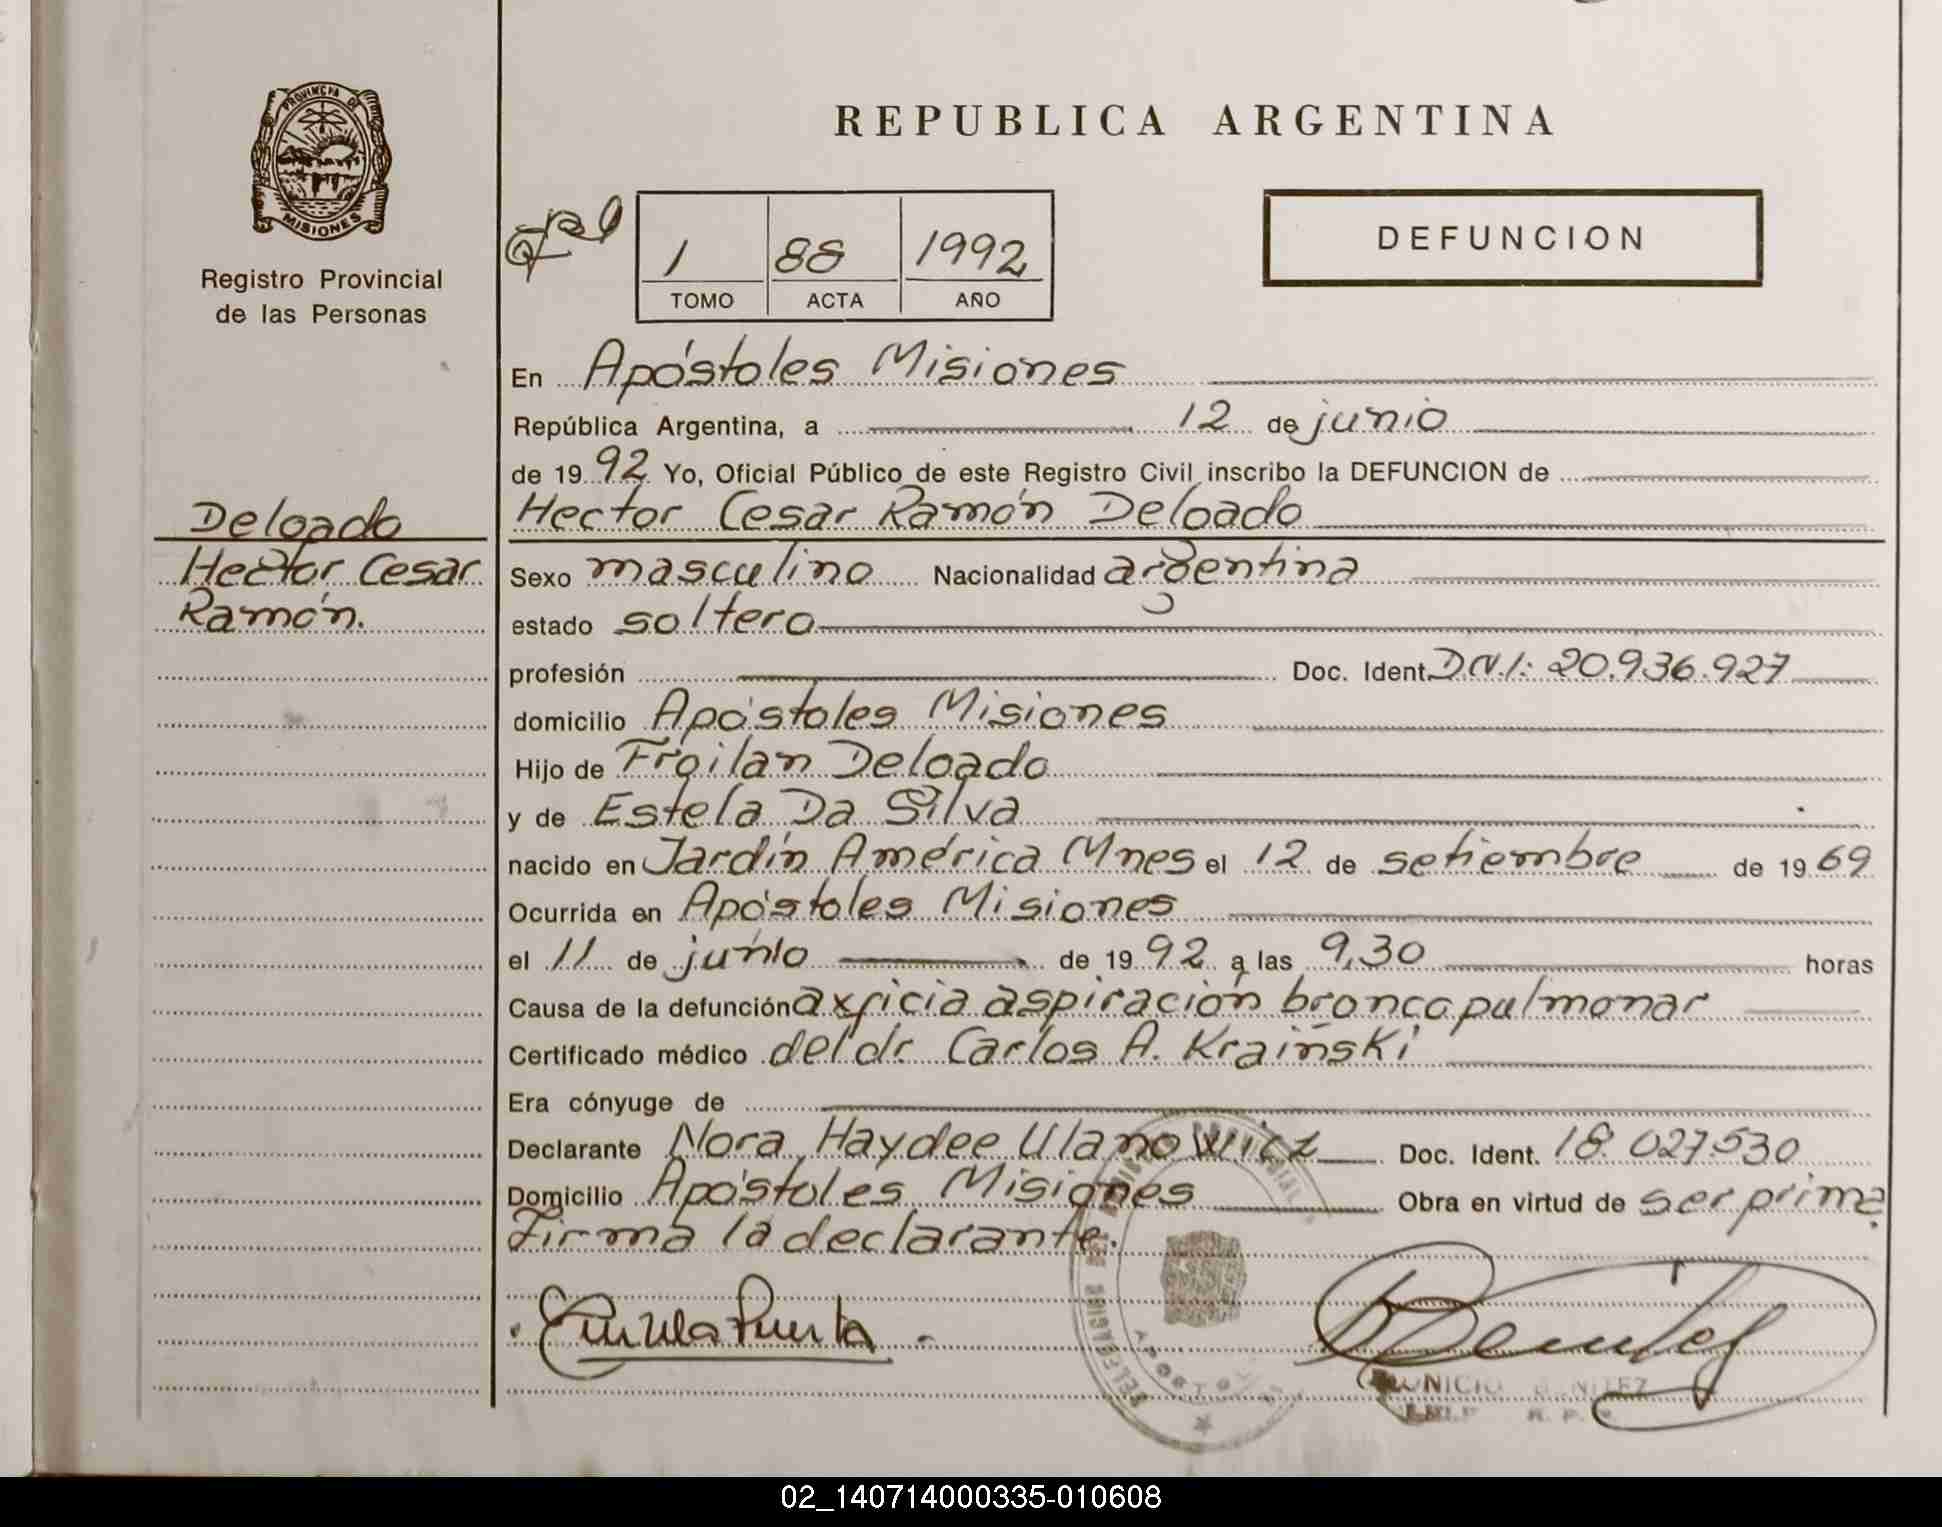 PROVINCIA DE
MISIONES
Registro Provincial
de las Personas
Delgado
Hector Cesar
Ramón.
REPUBLICA ARGENTINA
1 88 1992
TOMO ACTA AÑO
DEFUNCION
En Apóstoles Misiones
República Argentina, a 12 de junio
de 1992 Yo, Oficial Público de este Registro Civil inscribo la DEFUNCION de
Hector Cesar Ramón Delgado
Sexo masculino Nacionalidad argentina
estado soltero
profesión Doc. Ident. D.N.I: 20.936.927
domicilio Apóstoles Misiones
Hijo de Froilan Delgado
y de Estela Da Silva
nacido en Jardín América Mnes el 12 de setiembre de 1969
Ocurrida en Apóstoles Misiones
el 11 de junio de 1992 a las 9,30 horas
Causa de la defunción axficia aspiración broncopulmonar
Certificado médico del dr. Carlos A. Krainski
Era cónyuge de
Declarante Nora Haydee Ulanowicz Doc. Ident. 18.027.530
Domicilio Apóstoles Misiones Obra en virtud de ser prima
Firma la declarante.
BENITEZ
02_140714000335-010608